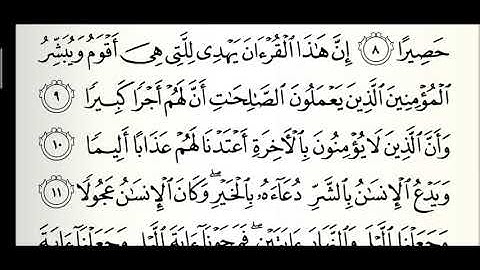 حَصِيرًا ٨ إِنَّ هَٰذَا ٱلْقُرْءَانَ يَهْدِى لِلَّتِى هِىَ أَقْوَمُ وَيُبَشِّرُ
ٱلْمُؤْمِنِينَ ٱلَّذِينَ يَعْمَلُونَ ٱلصَّٰلِحَٰتِ أَنَّ لَهُمْ أَجْرًا كَبِيرًا ٩
وَأَنَّ ٱلَّذِينَ لَا يُؤْمِنُونَ بِٱلْءَاخِرَةِ أَعْتَدْنَا لَهُمْ عَذَابًا أَلِيمًا ١٠
وَيَدْعُ ٱلْإِنسَٰنُ بِٱلشَّرِّ دُعَآءَهُۥ بِٱلْخَيْرِ ۖ وَكَانَ ٱلْإِنسَٰنُ عَجُولًا ١١
وَجَعَلْنَا ٱلَّيْلَ وَٱلنَّهَارَ ءَايَتَيْنِ ۖ فَمَحَوْنَآ ءَايَةَ ٱلَّيْلِ وَجَعَلْنَآ ءَايَةَ